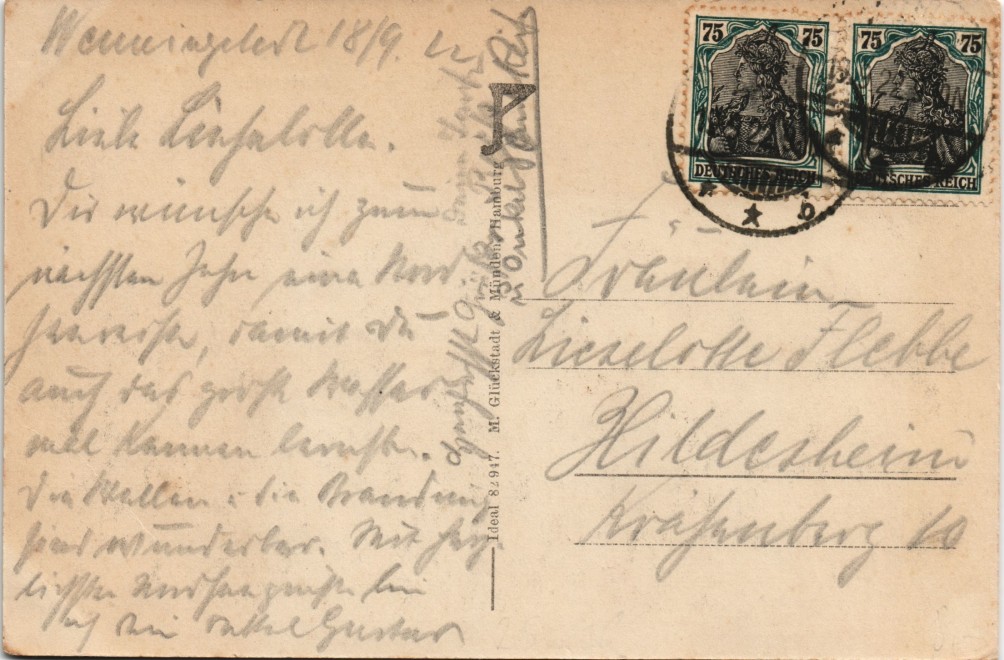 Wenningstedt 18/9. 22
Liebe Lieselotte.
Dir wünsche ich zum
nächsten Jahr eine Nord
seereise, damit du
auch das große Wasser
mal kennen lernst.
Die Wellen u. die Brandung
sind wunderbar. Mit herz
lichsten Nordseegrüßen bin
ich dein Onkel Gustav
Herzlichst Grüße
u Onkel
Ideal 82947. M. Glückstadt & Münden, Hamburg
75 75
DEUTSCHES REICH
75 75
DEUTSCHES REICH
b
Fräulein
Lieselotte Flebbe
Hildesheim
Krähenberg 10